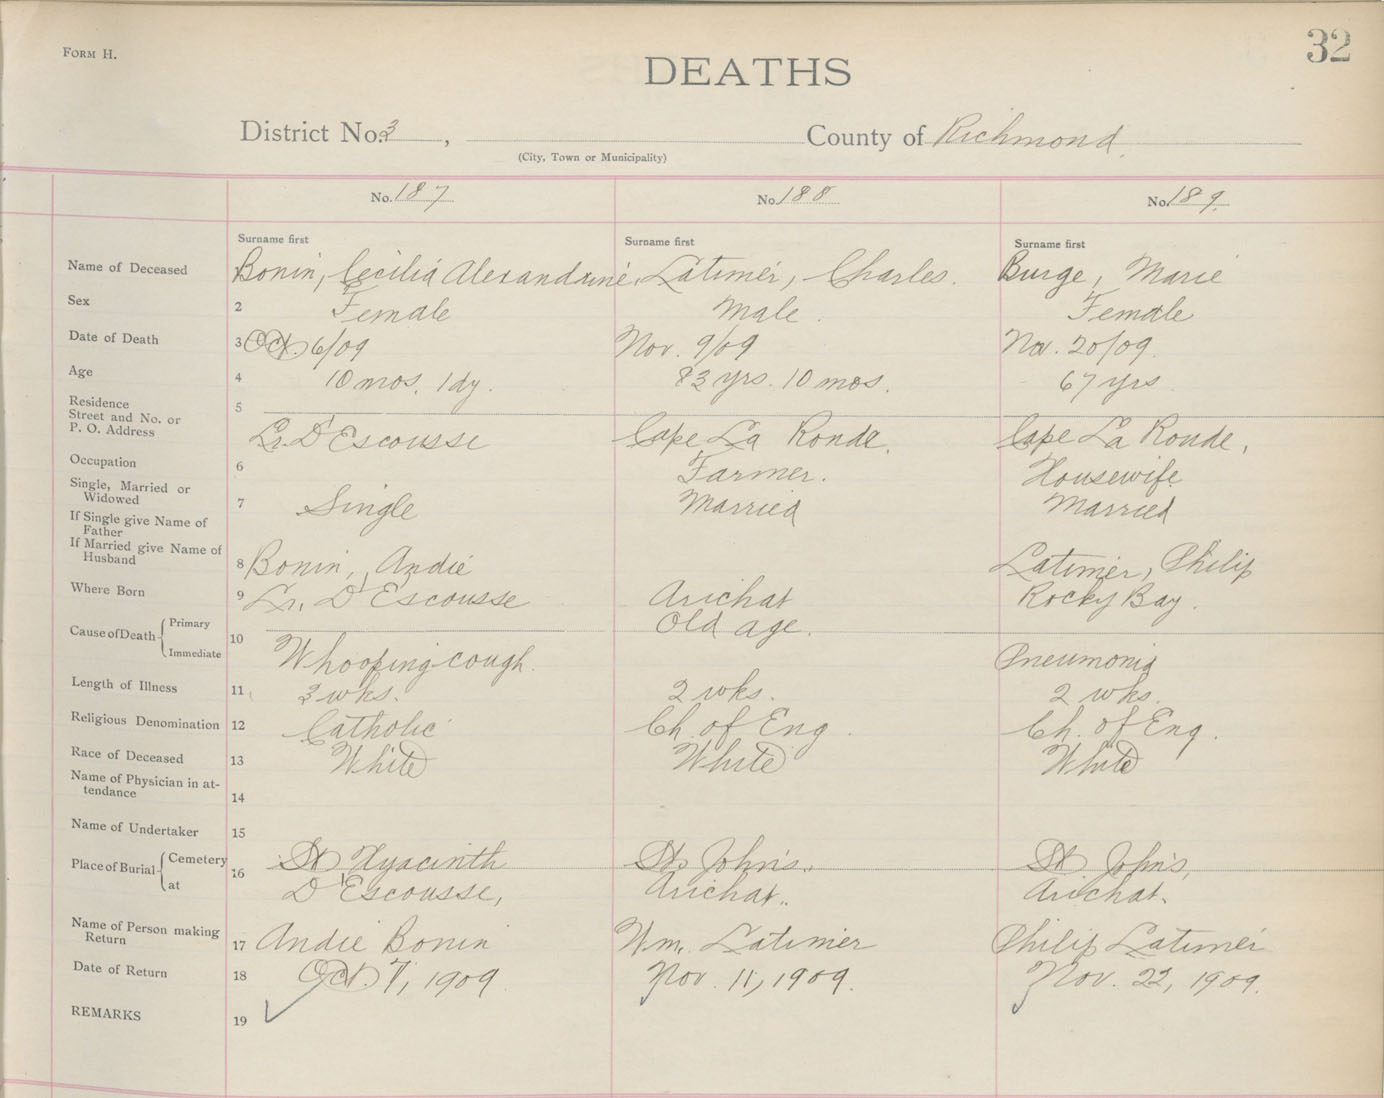 FORM H.
32
DEATHS
District No. 3, County of Richmond
(City, Town or Municipality)
No. 187 No. 188 No. 189
Surname first Surname first Surname first
Name of Deceased Bonin, Cecilia Alexandrine, Latimer, Charles. Burge, Marie
Sex 2 Female Male. Female
Date of Death 3 Oct. 6/09 Nov. 9/09 Nov. 20/09.
Age 4 10 mos. 1 dy. 83 yrs. 10 mos. 67 yrs
Residence 5
Street and No. or
P. O. Address Lr. D'Escousse Cape La Ronde, Cape La Ronde,
Occupation 6 Farmer. Housewife
Single, Married or
Widowed 7 Single Married Married
If Single give Name of
Father
If Married give Name of
Husband 8 Bonin, Andie Latimer, Philip
Where Born 9 Lr. D'Escousse Arichat Rocky Bay.
Cause of Death Primary 10 Old age.
Immediate Whooping cough. Pneumonia
Length of Illness 11 3 wks. 2 wks. 2 wks.
Religious Denomination 12 Catholic Ch. of Eng. Ch. of Eng.
Race of Deceased 13 White White White
Name of Physician in at-
tendance 14
Name of Undertaker 15
Place of Burial Cemetery 16 St Hyacinth St. John's. St John's,
at D'Escousse, Arichat.. Arichat.
Name of Person making
Return 17 Andie Bonin Wm. Latimer Philip Latimer
Date of Return 18 Oct. 7, 1909. Nov. 11, 1909. Nov. 22, 1909.
REMARKS 19